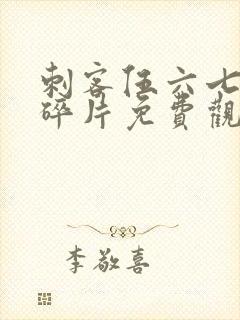 刺客伍六七
碎片免費觀
李敬喜